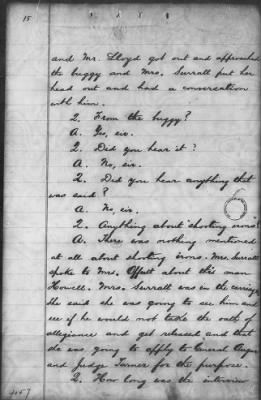 15
and Mr. Lloyd got out and approached
the buggy and Mrs. Surratt put her
head out and had a conversation
with him.
Q. From the buggy?
A. Yes, sir.
Q. Did you hear it?
A. No, sir.
Q. Did you hear anything that
was said?
A. No, sir.
Q. Anything about shooting irons?
A. There was nothing mentioned
at all about shooting irons. Mrs. Surratt
spoke to Mrs. Offutt about this man
Howell. Mrs. Surratt was in the carriage
She said she was going to see him and
see if he would not take the oath of
allegiance and get released and that
she was going to apply to General Augur
and Judge Turner for the purpose.
Q. How long was the interview